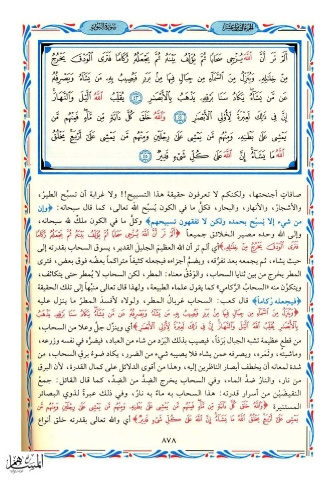 أَلَمْ تَرَ أَنَّ ٱللَّهَ يُزْجِى سَحَابًا ثُمَّ يُؤَلِّفُ بَيْنَهُۥ ثُمَّ يَجْعَلُهُۥ رُكَامًا فَتَرَى ٱلْوَدْقَ يَخْرُجُ
مِنْ خِلَٰلِهِۦ وَيُنَزِّلُ مِنَ ٱلسَّمَآءِ مِن جِبَالٍ فِيهَا مِنۢ بَرَدٍ فَيُصِيبُ بِهِۦ مَن يَشَآءُ وَيَصْرِفُهُۥ
عَن مَّن يَشَآءُ يَكَادُ سَنَا بَرْقِهِۦ يَذْهَبُ بِٱلْأَبْصَٰرِ ٤٣ يُقَلِّبُ ٱللَّهُ ٱلَّيْلَ وَٱلنَّهَارَ
إِنَّ فِى ذَٰلِكَ لَعِبْرَةً لِّأُو۟لِى ٱلْأَبْصَٰرِ ٤٤ وَٱللَّهُ خَلَقَ كُلَّ دَآبَّةٍ مِّن مَّآءٍ فَمِنْهُم مَّن
يَمْشِى عَلَىٰ بَطْنِهِۦ وَمِنْهُم مَّن يَمْشِى عَلَىٰ رِجْلَيْنِ وَمِنْهُم مَّن يَمْشِى عَلَىٰٓ أَرْبَعٍ يَخْلُقُ
ٱللَّهُ مَا يَشَآءُ إِنَّ ٱللَّهَ عَلَىٰ كُلِّ شَىْءٍ قَدِيرٌ ٤٥
صافاتٍ أجنحتها، ولكنكم لا تعرفون حقيقة هذا التسبيح!! ولا غرابة أن تسبِّح الطيرُ،
والأشجارُ، والأنهار، والبحار، فكلُّ ما في الكون يُسبِّح الله تعالى، كما قال سبحانه: ﴿وإن
من شيء إلا يسبّح بحمده ولكن لا تفقهون تسبيحهم﴾ وكلُّ ما في الكون ملكٌ لله سبحانه،
وإلى الله وحده مصير الخلائق جميعاً ﴿أَلَمْ تَرَ أَنَّ ٱللَّهَ يُزْجِى سَحَابًا ثُمَّ يُؤَلِّفُ بَيْنَهُۥ ثُمَّ يَجْعَلُهُۥ
رُكَامًا فَتَرَى ٱلْوَدْقَ يَخْرُجُ مِنْ خِلَٰلِهِۦ﴾ أي ألم تر أن الله العظيم الجليل القدير، يسوق السحاب بقدرته إلى
حيث يشاء، ثم يجمعه بعد تفرُّقه، ويضمُّ أجزاءه فيجعله كثيفاً متراكماً بعضُه فوق بعض، فترى
المطر يخرج من بين ثنايا السحاب، والوَدْقُ معناه: المطر، لكن السحاب لا يُمطر حتى يتكاثف،
ويتكوَّن منه «السحابُ الرُّكامي» كما يقول علماء الطبيعة، ولهذا قال تعالى منبِّهاً إلى تلك الحقيقة
﴿فيجعله ركاماً﴾ قال كعب: السحاب غربالُ المطر، ولولاه لأفسد المطرُ ما ينزل عليه
﴿وَيُنَزِّلُ مِنَ ٱلسَّمَآءِ مِن جِبَالٍ فِيهَا مِنۢ بَرَدٍ فَيُصِيبُ بِهِۦ مَن يَشَآءُ وَيَصْرِفُهُۥ عَن مَّن يَشَآءُ يَكَادُ سَنَا بَرْقِهِۦ يَذْهَبُ
بِٱلْأَبْصَٰرِ يُقَلِّبُ ٱللَّهُ ٱلَّيْلَ وَٱلنَّهَارَ إِنَّ فِى ذَٰلِكَ لَعِبْرَةً لِّأُو۟لِى ٱلْأَبْصَٰرِ﴾ أي وينزل جلَّ وعلا من السحاب،
من قطعٍ عظيمة تشبه الجبال بَرَداً، فيصيب بذلك البَرَد من شاء من العباد، فيضرُّه في نفسه وزرعه،
وماشيته، وثَمَره، ويصرفه عمن يشاء فلا يصيبه شيء من الضرر، يكاد ضوءُ برق السحاب، من
شدة لمعانه أن يخطف أبصار الناظرين إليه، وهذا من أقوى الدلائل على كمال القدرة، لأن البرق
من نار، والنارُ ضدُّ الماء، وفي السحاب يخرج الضدُّ من الضدِّ، كما قال القائل: جمعُ
النقيضيْن من أسرار قدرته: هذا السحاب به ماءٌ به نارُ، وفي ذلك عبرةٌ لذوي البصائر
المستنيرة ﴿وَٱللَّهُ خَلَقَ كُلَّ دَآبَّةٍ مِّن مَّآءٍ فَمِنْهُم مَّن يَمْشِى عَلَىٰ بَطْنِهِۦ وَمِنْهُم مَّن يَمْشِى عَلَىٰ رِجْلَيْنِ وَمِنْهُم مَّن
يَمْشِى عَلَىٰٓ أَرْبَعٍ يَخْلُقُ ٱللَّهُ مَا يَشَآءُ إِنَّ ٱللَّهَ عَلَىٰ كُلِّ شَىْءٍ قَدِيرٌ﴾ أي والله تعالى بقدرته خلق أنواع
٨٧٨